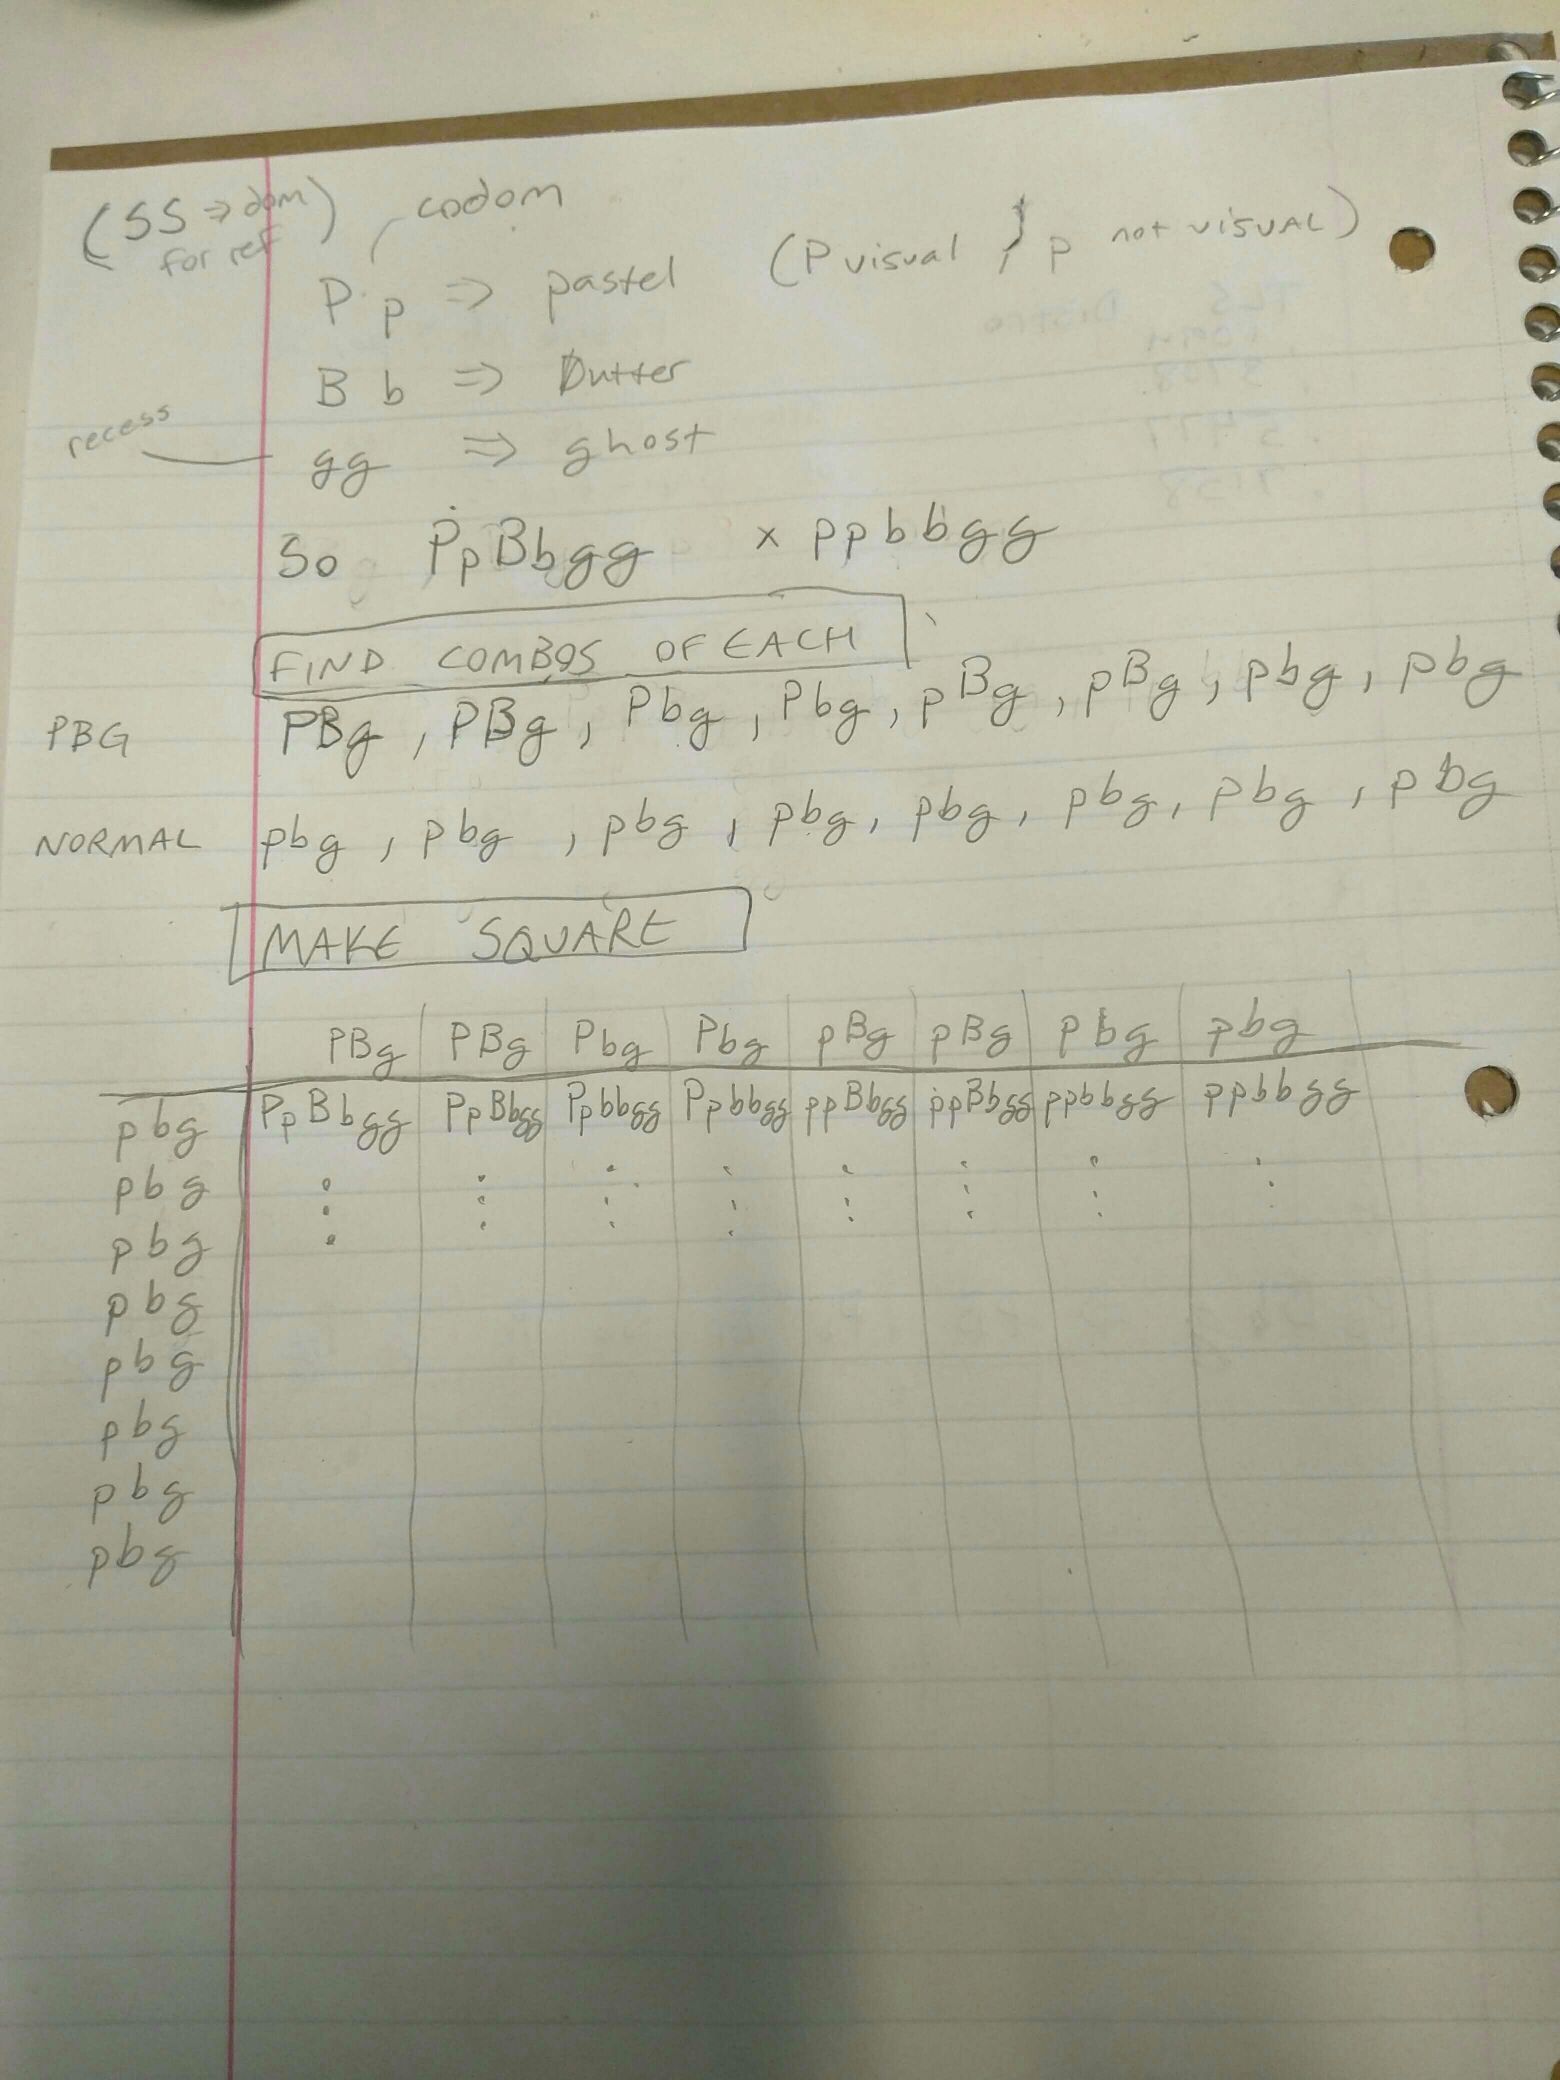 (SS ⇒ dom) codom
for ref
Pp ⇒ pastel (P visual, p not visual)
Bb ⇒ butter
recess
gg ⇒ ghost
So PpBbgg x ppbbgg
FIND COMBOS OF EACH
PBG PBg, PBg, Pbg, Pbg, pBg, pBg, pbg, pbg
NORMAL pbg, pbg, pbg, pbg, pbg, pbg, pbg, pbg
MAKE SQUARE
PBg PBg Pbg Pbg pBg pBg pbg pbg
pbg PpBbgg PpBbgg Ppbbgg Ppbbgg ppBbgg ppBbgg ppbbgg ppbbgg
pbg
pbg
pbg
pbg
pbg
pbg
pbg